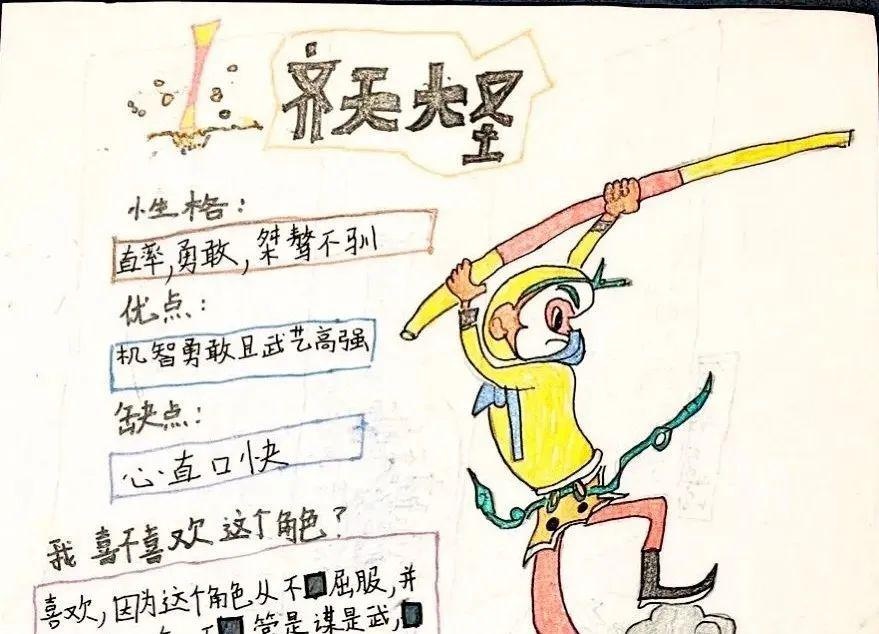 齐天大圣
性格：
直率，勇敢，桀骜不驯
优点：
机智勇敢且武艺高强
缺点：
心直口快
我喜不喜欢这个角色？
喜欢，因为这个角色从不屈服，并
管是谋是武，